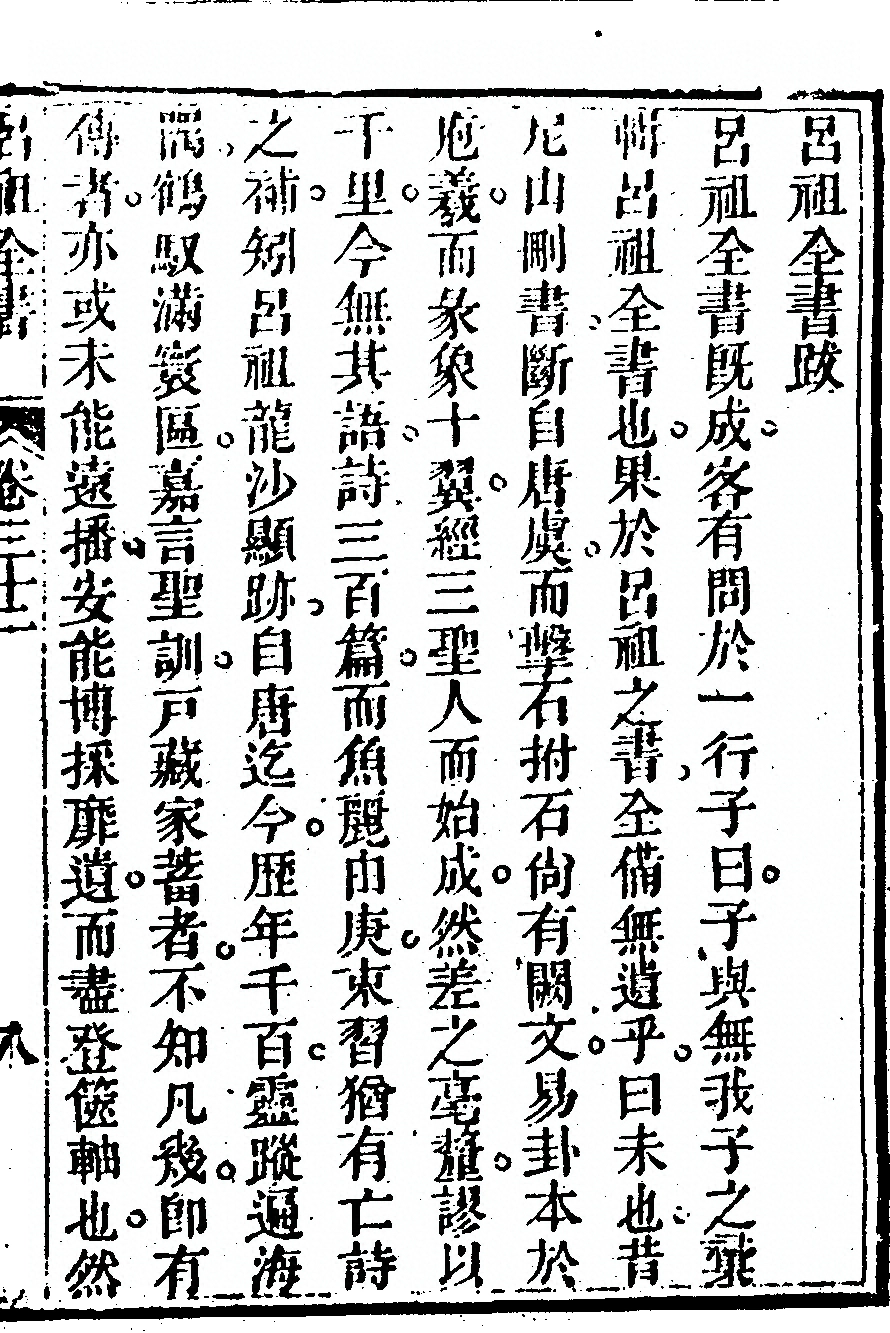 呂祖全書跋
呂祖全書既成客有問於一行子曰子與無我子之彙
輯呂祖全書也果於呂祖之書全備無遺乎曰未也昔
尼山刪書斷自唐虞而擊石拊石尙有闕文易卦本於
庖羲而彖象十翼經三聖人而始成然差之毫釐謬以
千里今無其語詩三百篇而魚麗由庚東習猶有亡詩
之補矧呂祖龍沙顯跡自唐迄今歷年千百靈蹤遍海
隅鶴馭滿寰區嘉言聖訓戸藏家蓄者不知凡幾卽有
傳者亦或未能遠播安能博採靡遺而盡登篋軸也然
呂祖全書 卷三十二 八